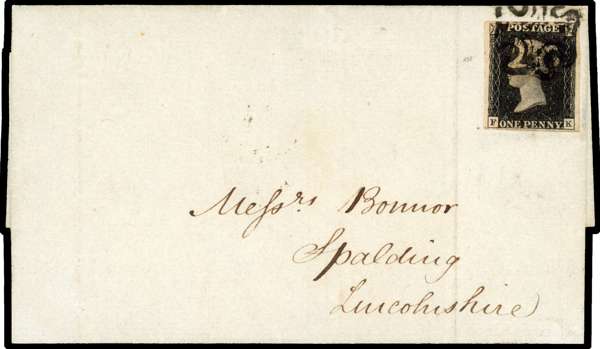 POSTAGE
ONE PENNY
F K
Messrs Bonnor
Spalding
Lincolnshire